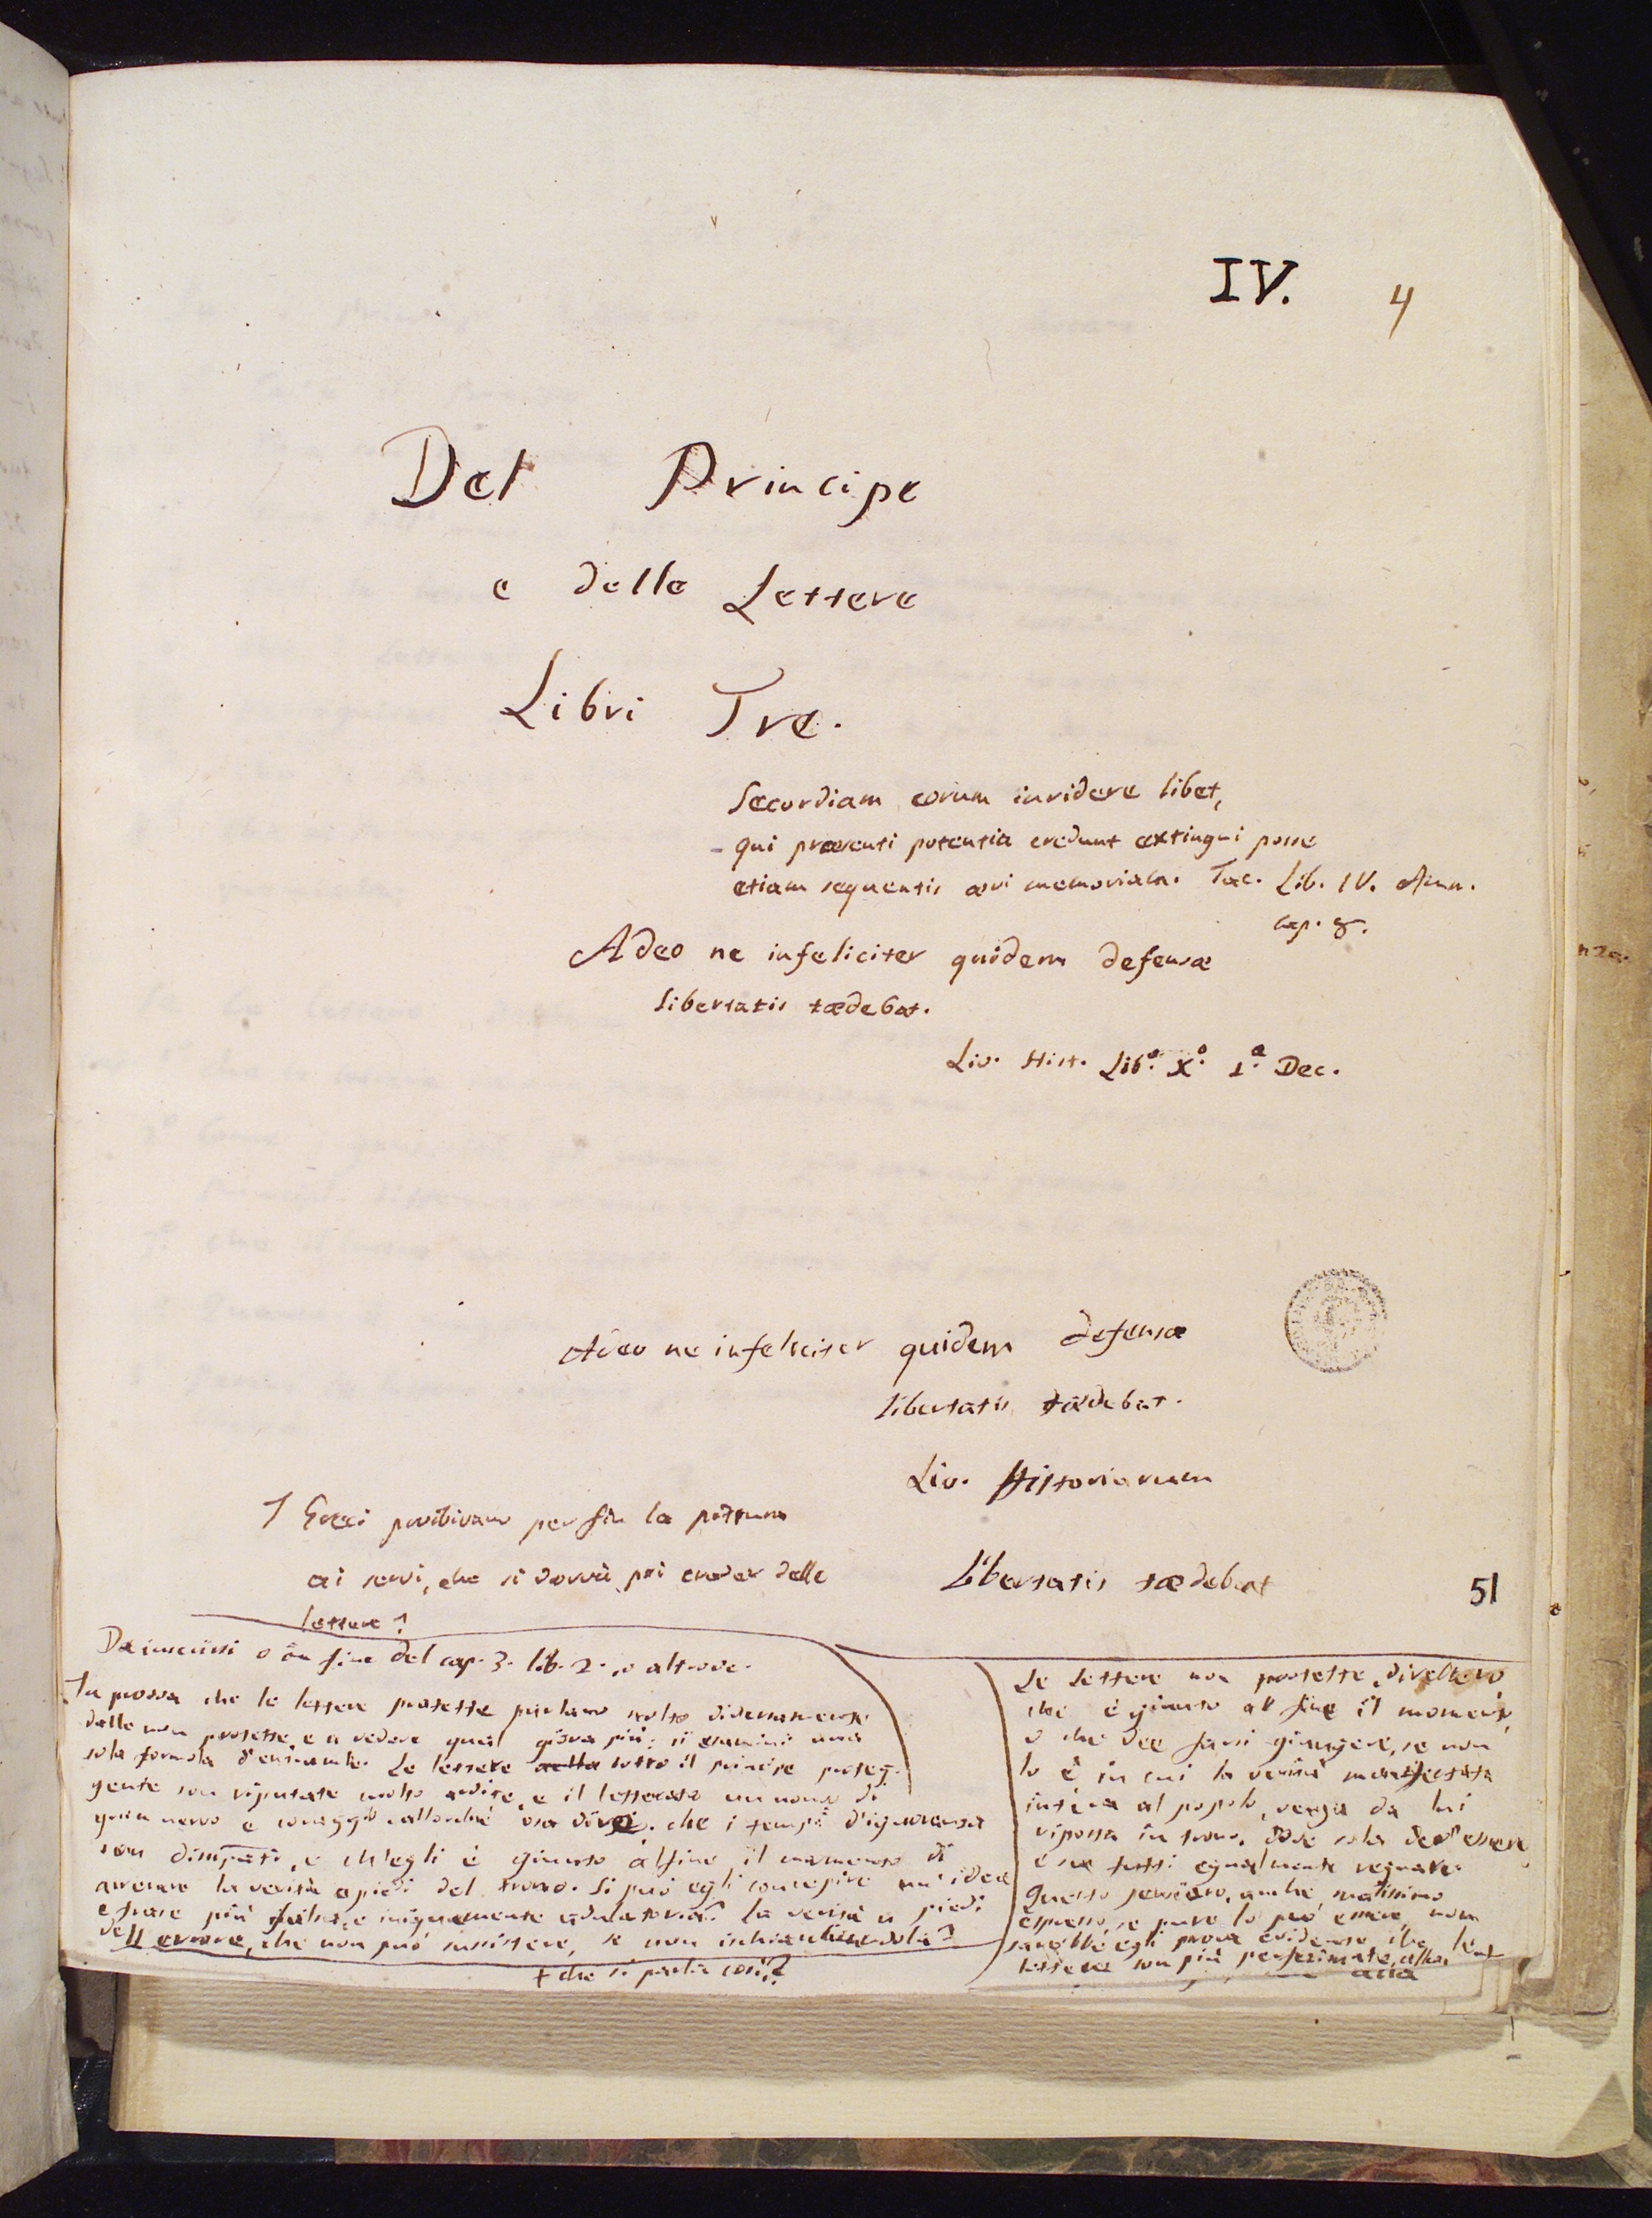 IV. 4
Del Principe
e delle Lettere
Libri Tre.
Secordiam eorum inridere libet,
qui præsenti potentia credunt extingui posse
etiam sequentis ævi memoriam. Tac. Lib. IV. Ann.
cap. 8.
Adeo ne infeliciter quidem defensæ
libertatis tædebat.
Liv. Hist. Lib.o X.o 1.a Dec.
Adeo ne infeliciter quidem defensæ
libertatis tædebat.
Liv. Historiarum
I Greci proibivano per fin la pittura
ai servi, che si dovrà poi creder delle
lettere?
Libertatis tædebat
51
Da inserirsi o in fine del cap. 3. lib. 2. o altrove.
In prova che le lettere protette parlano molto diversamente
dalle non protette, e a vedere qual giova più: si esamini una
sola formola d'entrambe. Le lettere sotto il principe proteg-
gente son riputate molto ardite, e il letterato un uomo di
gran nervo e coraggio allorché osa dirgli che i tempi d'ignoranza
son dissipati, e ch'egli è giunto alfine il momento di
arrecare la verità a piedi del trono. Si può egli concepire un'idea
e frase più falsa, e iniquamente adulatoria? la verità a piedi
dell'errore, che non può sussistere, se non ischiacciandola?
+ che si parla così?
Le Lettere non protette, direbbero
che è giunto al fine il momento,
o che dee farsi giungere, se non
lo è, in cui la verità manifestata
intera al popolo, venga da lui
riposta in trono, dove sola dev'essere,
e su tutti egualmente regnare.
Questo pensiero, anche malissimo
espresso, se pure lo può essere, non
sarebbe egli prova evidente che le
lettere son più